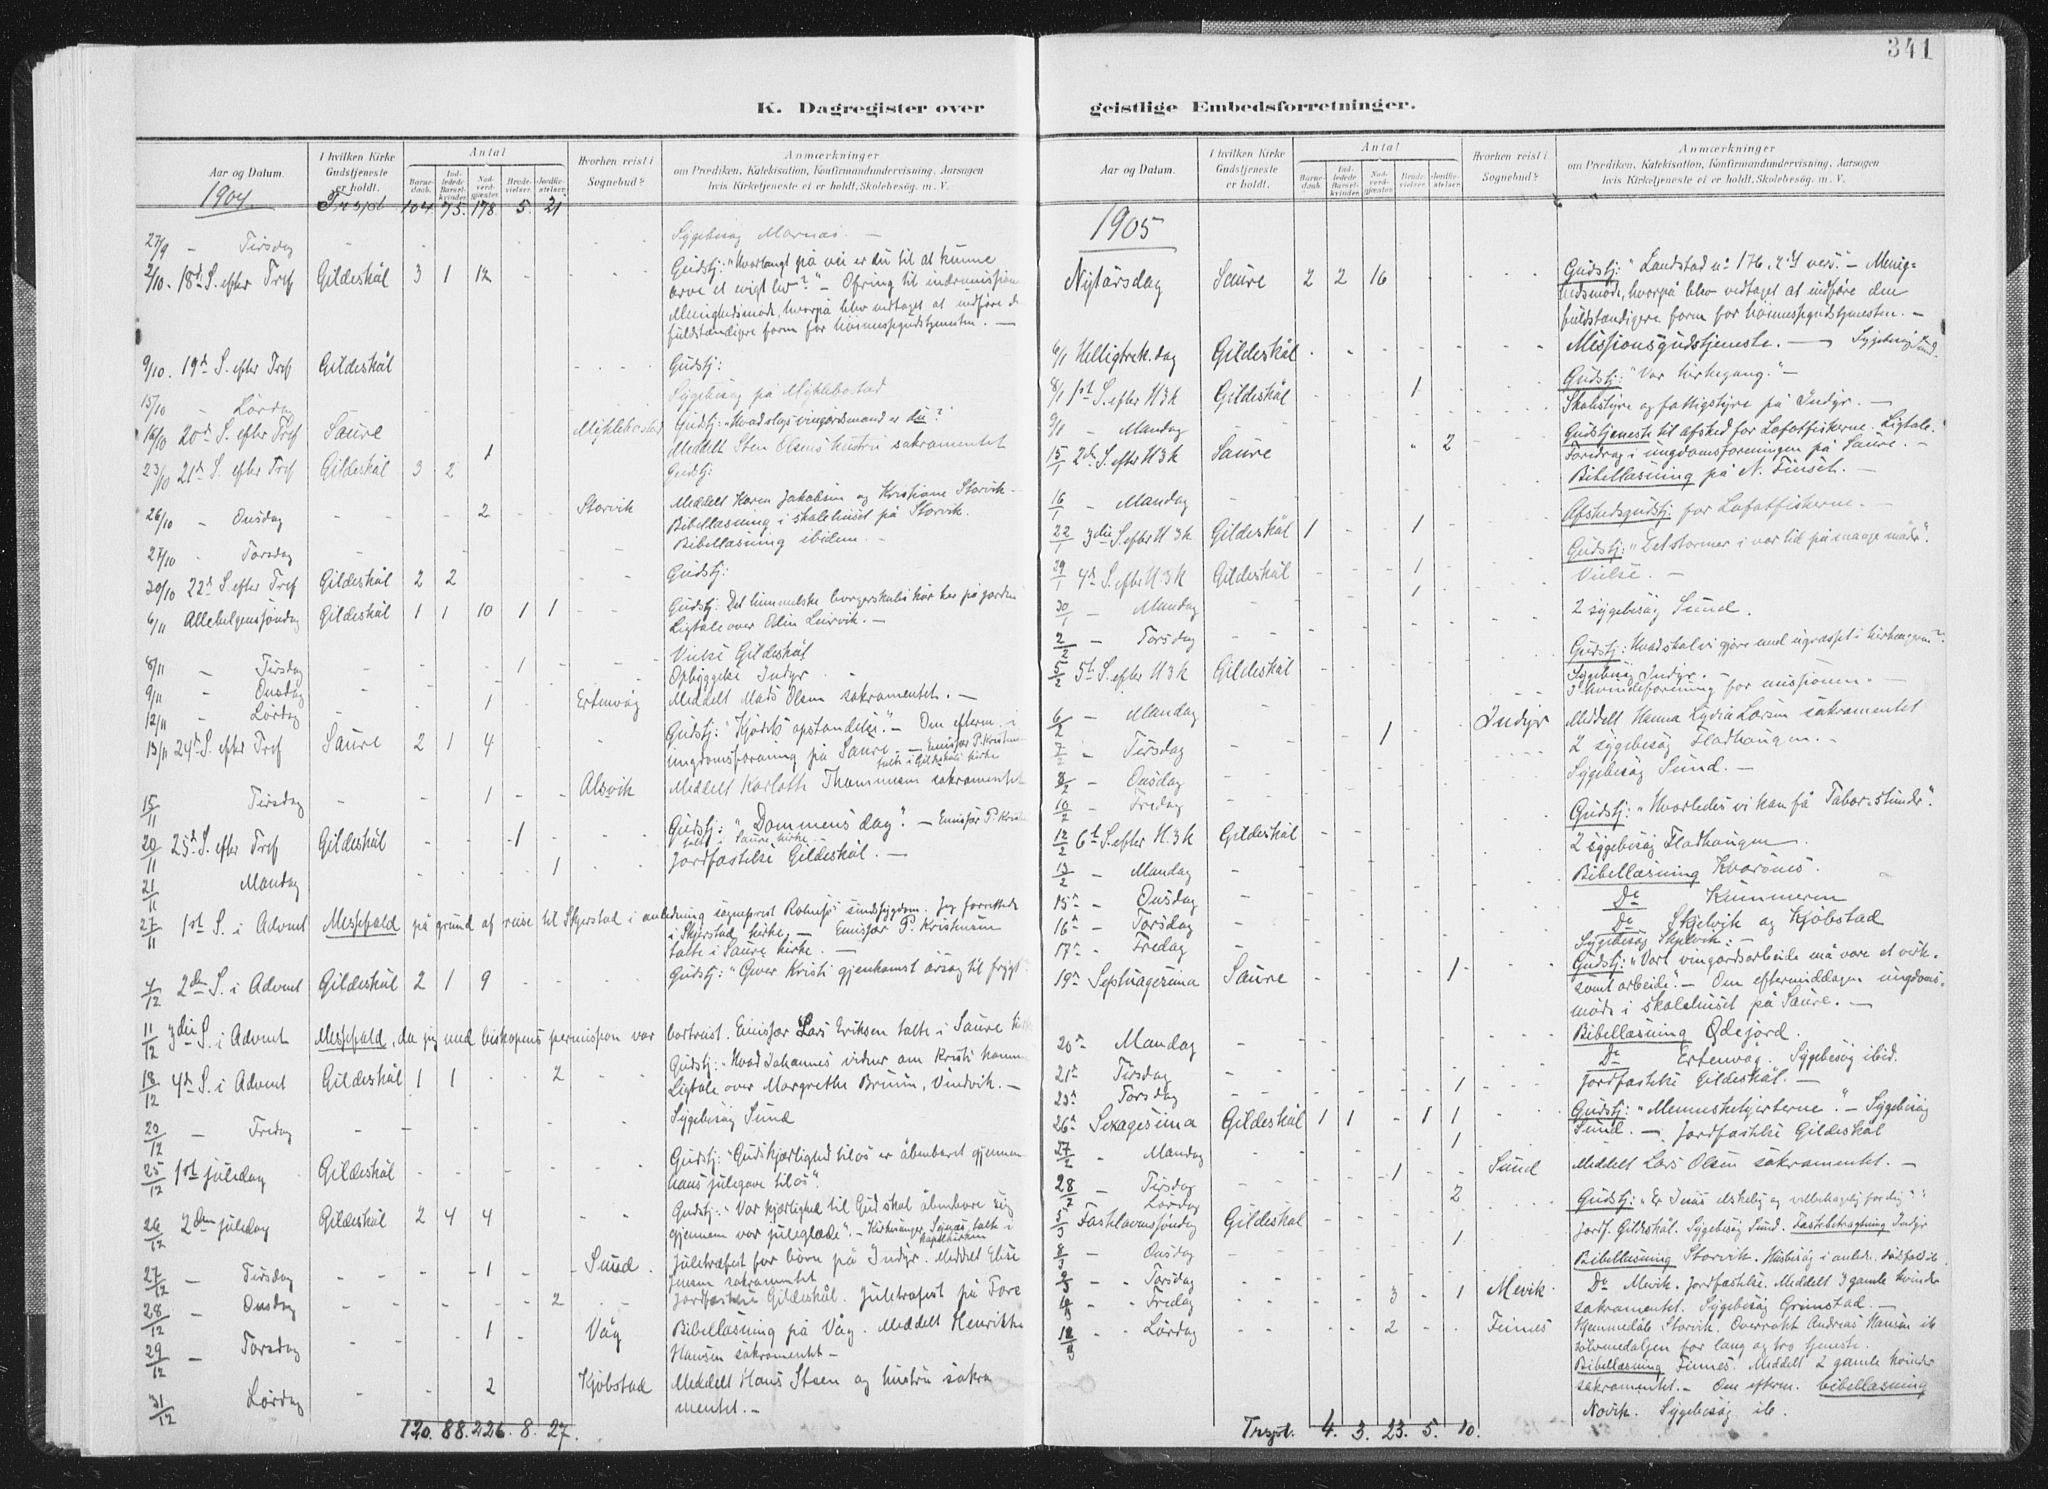 341
K. Dagregister over
geistlige Embedsforretninger.
Aar og Datum.
I hvilken Kirke Gudstjeneste er holdt.
Antal
Barnedaab.
Indledede Barselkvinder.
Nadverdgjæster.
Brudevielser.
Jordfæstelser.
Hvorhen reist i Sognebud?
Anmærkninger
om Prædiken, Katekisation, Konfirmandundervisning, Aarsagen
hvis Kirketjeneste ei er holdt, Skolebesøg, m. V.
1904. Trspt 104. 75. 178. 5. 21
27/9 - Tirsdag - Sygebesøg Marnæs. -
2/10. 18d. S. efter Tref Gildeskål 3 1 12 Gudstj: "Hvorlangt på vei er du til at kunne
arve et evigt liv?" - Ofring til indremission
Menighedsmøde, hvorpå blev vedtaget at indføre de
fuldstændigere form for høimessegudstjenesten. -
9/10. 19d S. efter Tref Gildeskål Gudstj:
15/10 - Lørdag Sygebesøg på Myklebostad
16/10 20d S. efter Tref Saure Myklebostad Gudstj: "Hvadslags vingårdsmand er du?"
1 Meddelt Sten Olsens hustru sakramentet
23/10 21d S. efter Tref Gildeskål 3 2 Gudstj:
26/10 - Onsdag 2 Storvik Meddelt Karen Jakobsen og Kristiane Storvik -
Bibellæsning i skolehuset på Storvik.
27/10 - Torsdag Bibellæsning ibidem. -
30/10 22d S. efter Tref Gildeskål 2 2 Gudstj:
6/11 Allehelgenssøndag Gildeskål 1 1 10 1 1 Gudstj: Det himmelske borgerskabs kår her på jorden
Ligtale over Edin Leirvik. -
8/11 - Tirsdag 1 Vielse Gildeskål
9/11 - Onsdag Opbyggelse Indyr.
12/11 - Lørdag 1 Ertenvåg Meddelt Mads Olsen sakramentet. -
13/11 24d S. efter Tref Saure 2 1 4 Gudstj: "Kjødets opstandelse". - Om efterm. i
ungdomsforening på Saure. - Emissær P. Kristensen
talte i Gildeskål kirke
15/11 Tirsdag 1 Alsvik Meddelt Karloth Thommesen sakramentet
20/11 25d S. efter Tref Gildeskål 1 Gudstj: "Dommens dag". - Emissær P. Krist
talte i Saure kirke
21/11 Mandag 1 Jordfæstelse Gildeskål. -
27/11 1st S. i Advent Messefald på grund af reise til Skjerstad i anledning sogneprest sindssygdom. Jeg forrettede
i Skjerstad kirke - Emissær P. Kristensen
talte i Saure kirke. -
4/12 2den S. i Advent Gildeskål 2 1 9 Gudstj: "Giver Kristi gjenkomst årsag til frygt"
11/12 3die S. i Advent Messefald, da jeg med biskopens permission var bortreist. Emissær Lars Eriksen talte i Saure kirke
18/12 4d S. i Advent Gildeskål 1 1 2 Gudstj: "Hvad Johannes vidner om Kristi komme
Ligtale over Margrethe Bruun, Vindvik. -
20/12 - Fredag Sygebesøg Sund
25/12 1st juledag Gildeskål Gudstj: "Guds kjærlighed til os er åbenbaret gjennem
hans julegave til os".
26/12 2den juledag Gildeskål 2 4 4 Gudstj: "Vor kjærlighed til Gud skal åbenbare sig
gjennem vor juleglæde". - Kirkesanger talte i
kapelkirken
27/12 - Tirsdag 1 Sund. Juletræfest for børn på Indyr. Meddelt Elise
Jensen sakramentet
28/12 - Onsdag 2 Jordfæstelse Gildeskål. Juletræfest på Fore
29/12 - Torsdag 1 Våg Bibellæsning på Våg. Meddelt Henrikke
Hansen sakramentet -
31/12 Lørdag 2 Kjøbstad Meddelt Hans Steen og hustru sakra
mentet. -
120. 88. 226. 8. 27.
Aar og Datum.
I hvilken Kirke Gudstjeneste er holdt.
Antal
Barnedaab.
Indledede Barselkvinder.
Nadverdgjæster.
Brudevielser.
Jordfæstelser.
Hvorhen reist i Sognebud?
Anmærkninger
om Prædiken, Katekisation, Konfirmandundervisning, Aarsagen
hvis Kirketjeneste ei er holdt, Skolebesøg, m. V.
1905
Nytårsdag Saure 2 2 16 Gudstj: "Landstad no 176, 1. vers". - Menig-
hedsmøde, hvorpå blev vedtaget at indføre den
fuldstændigere form for høimessegudstjenesten. -
6/1 Helligtrek. dag Gildeskål Missionsgudstjeneste. - Sygebesøg Sund.
8/1 1st S. efter H 3 k Gildeskål 1 Gudstj: "Vor kirkegang." -
9/1 - Mandag Skolestyre og fattigstyre på Indyr. -
15/1 2d S. efter H 3 k Saure 2 Gudstjeneste til afsked for Lofotfiskerne. Ligtale.
Foredrag i ungdomsforeningen på Saure. -
16/1 - Mandag Bibellæsning på N. Finset. -
22/1 3die S. efter H 3 k Gildeskål 1 1 Afskedsgudstj: for Lofotfiskerne. -
29/1 4d S. efter H 3 k Gildeskål 1 Gudstj: "Det stormer i vor tid på mange måder".
30/1 - Mandag 1 Vielse. -
2/2 - Torsdag 2 sygebesøg Sund.
5/2 5t S. efter H 3 k Gildeskål Gudstj: Hvad skal vi gjøre med ugræsset i kirkens?
Sygebesøg Indyr. -
6/2 - Mandag I kvindeforening for missionen. -
7/2 - Tirsdag 1 Indyr Meddelt Hanna Lydia Larsen sakramentet
8/2 - Onsdag 2 sygebesøg Fladhaugen. -
10/2 - Fredag Sygebesøg Sund. -
12/2 6t S. efter H. 3 k Gildeskål Gudstj: "Hvorledes vi kan få Tabor-stunder".
13/2 - Mandag 2 sygebesøg Fladhaugen
15d - Onsdag Bibellæsning Kvarsnes.
16d - Torsdag Do Kummeren
17d - Fredag Do Skjelvik og Kjøbstad
Sygebesøg Skjelvik. -
19d Septuagesima Saure 1 Gudstj: "Vort vingårdsarbeide må være et virk-
somt arbeide". - Om eftermiddagen ungdoms-
møde i skolehuset på Saure. -
20d Mandag Bibellæsning Ødejord.
21d Tirsdag Do Ertenvåg. Sygebesøg ibid.
23d Torsdag 1 Jordfæstelse Gildeskål. -
26d Sexagesima Gildeskål 1 1 1 1 Gudstj: "Menneskehjerterne." - Sygebesøg
Sund. -
27/2 - Mandag 1 Jordfæstelse Gildeskål
28/2 - Tirsdag 1 Sund Meddelt Lars Olsen sakramentet. -
Lørdag 2
5/3 Fastelavnssøndag Gildeskål Gudstj: "Er Jesus elskelig og velbehagelig for dig?"
8/3 - Onsdag 1 Jordf. Gildeskål. Sygebesøg Sund. Fastebetragtning Indyr
9/3 - Torsdag Bibellæsning Storvik. Husbesøg i anledn. dødsfald ib.
- Fredag 3 1 Mevik. Do Mevik. Jordfæstelse. Meddelt 3 gamle kvinder
sakramentet. Sygebesøg Grimstad. -
- Lørdag 2 Feines Hjemmedåb Storvik. Overrakt Andreas Hansen ib
sølvmedaljen for lang og tro tjeneste.
Bibellæsning Finnes. Meddelt 2 gamle kvinder
sakramentet. - Om efterm. bibellæsning
Novik. Sygebesøg ib.
Trspt. 4. 3. 23. 5. 10.